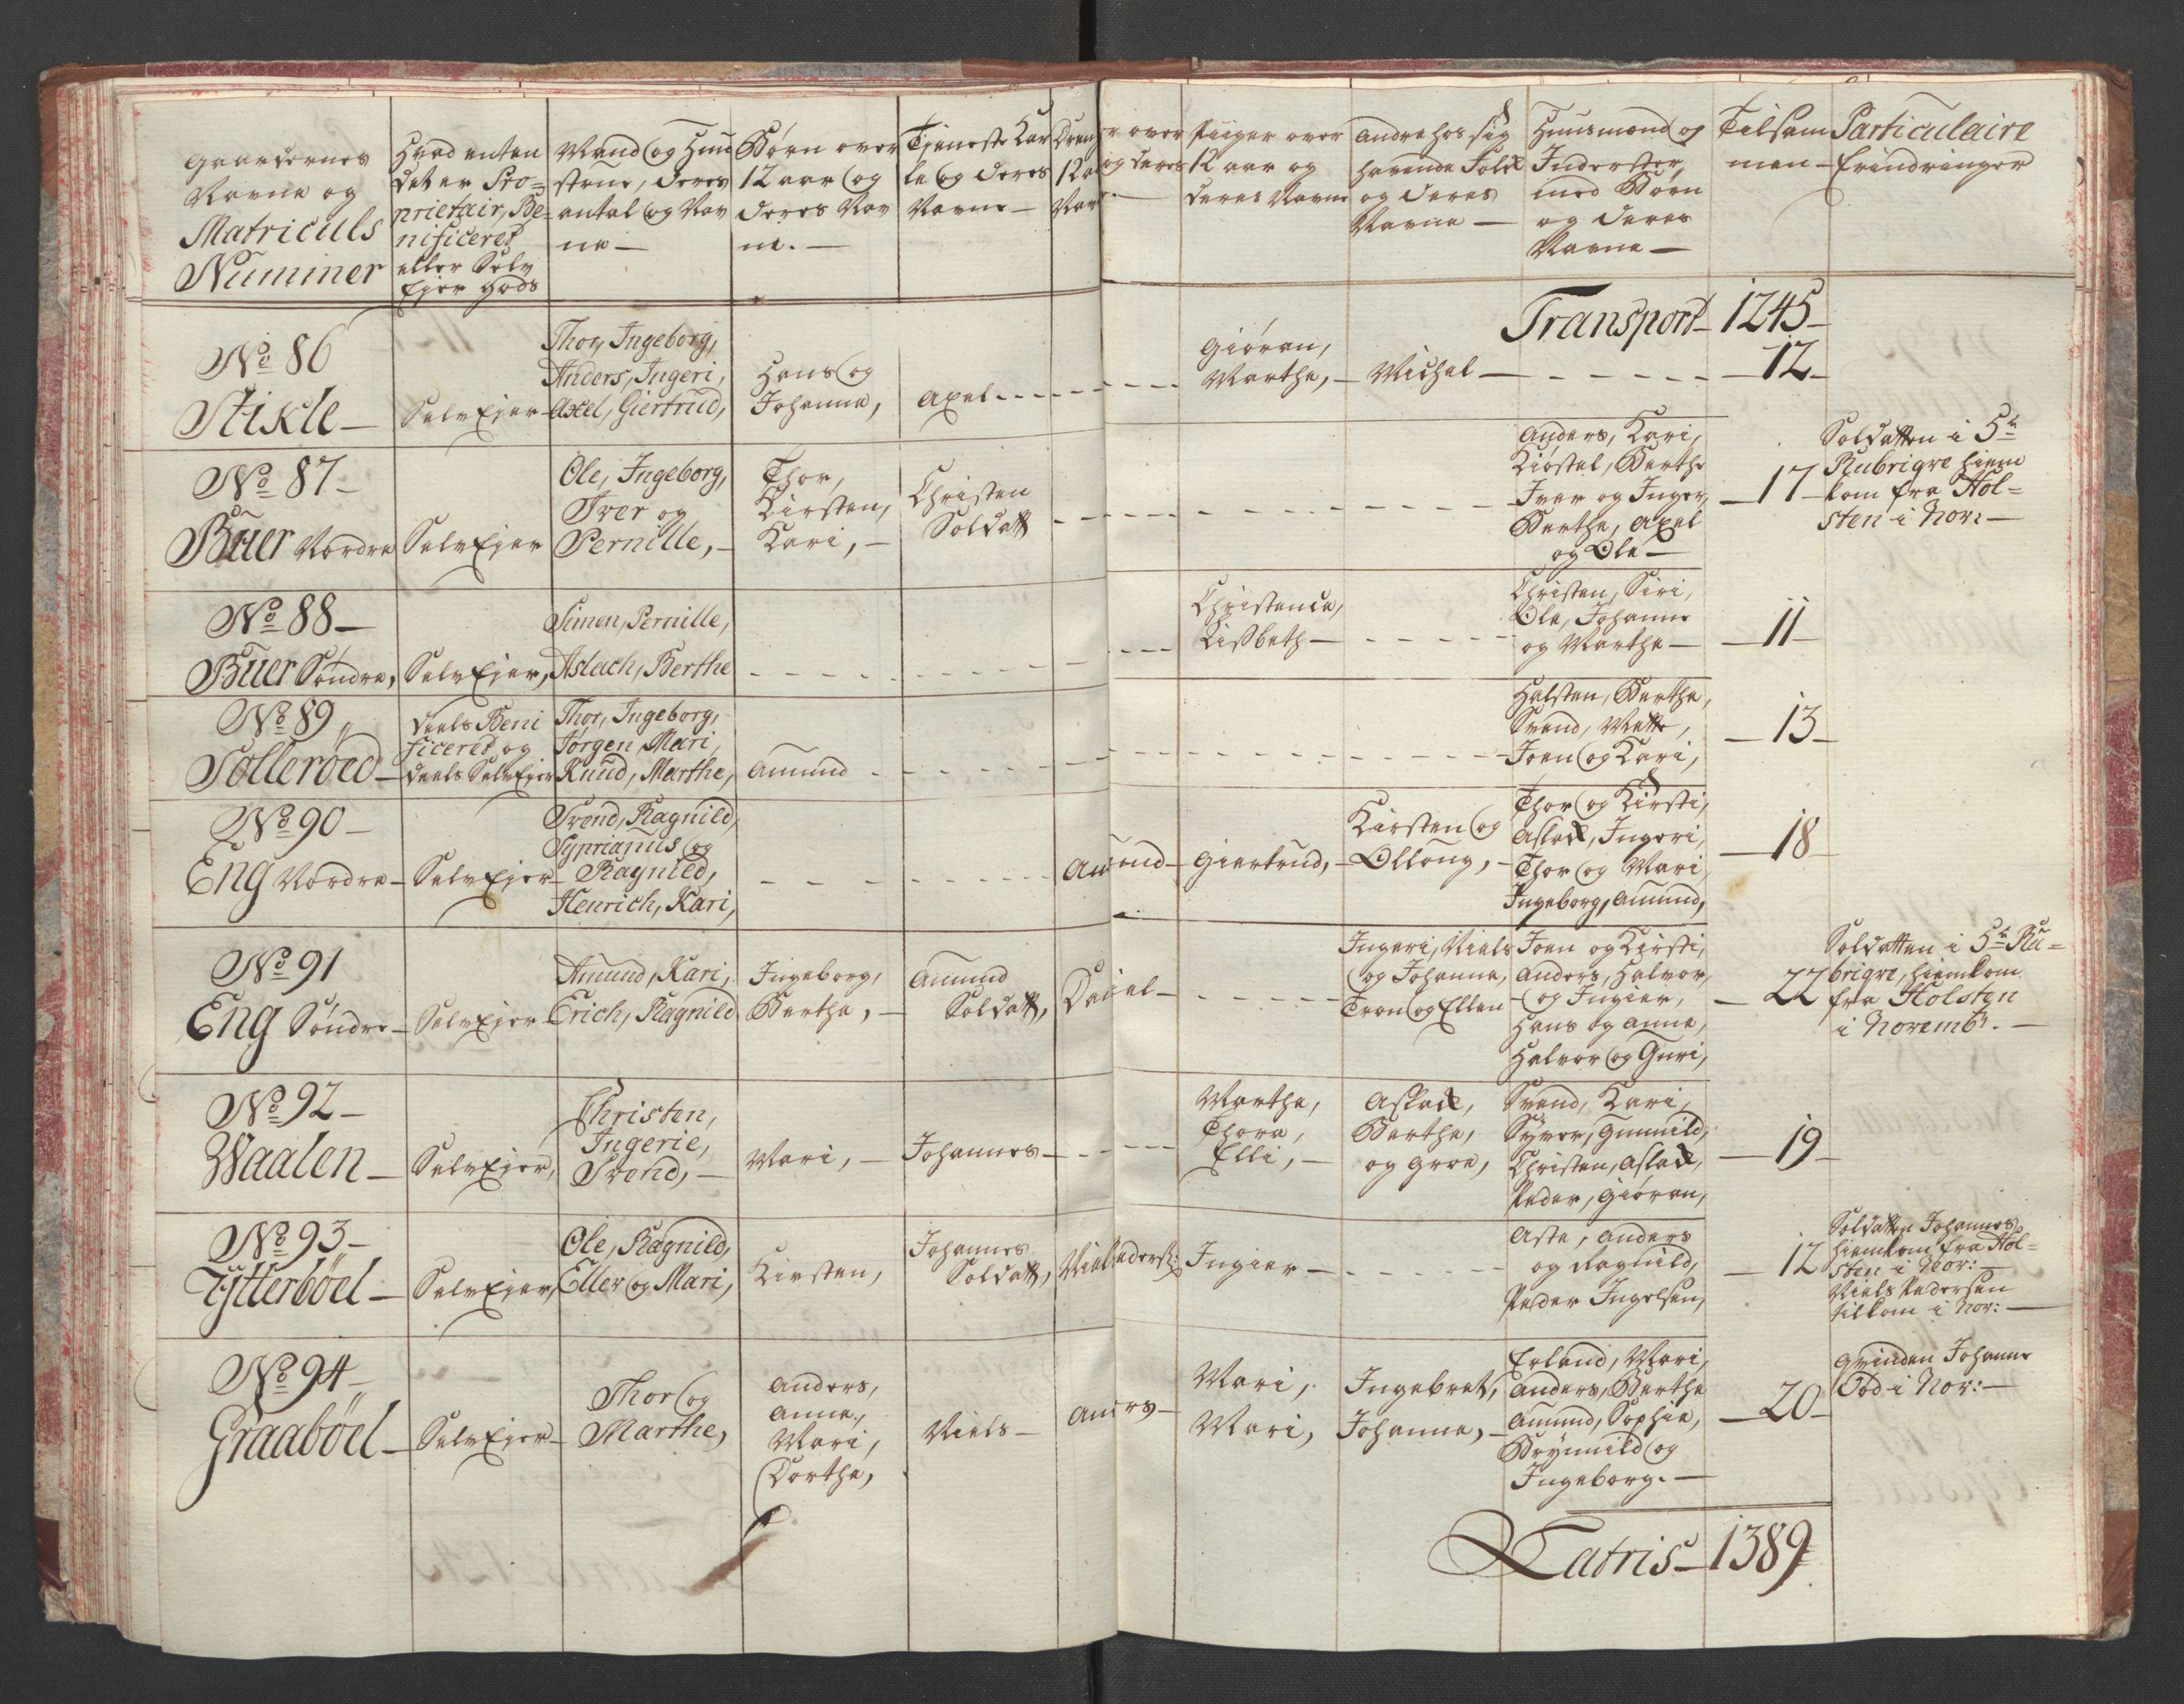 Gaardernes
Navne og
Matriculs
Nummer
Hvad enten
det er Pro=
prietair, Be=
nificeret
eller Selv
Ejer Gods
Mand og Huu
strue, deres
antal og Nav
ne —
Børn over
12 aar og
deres Nav
ne. —
Tjeneste Kar
le og deres
Navne —
Dren
12 a
Nav
r over
og deres
Piiger over
12 aar og
deres Navne
Andre hos sig
havende Folk
og deres
Navne —
Huusmænd og
Inderster
med Børn
og deres
Navne —
Tilsam
men —
Particulaire
Erindringer
Transport — 1245 —
No 86
Stikle —
SelvEjer —
Thor, Ingeborg,
Anders, Ingeri,
Axel, Giertrud,
Hans og
Johanna,
Axel
Giøran,
Marthe, —
Michel —
— 12 —
No 87 —
Buer Nordre
SelvEjer
Ole, Ingeborg,
Iver og
Pernille, —
Thor,
Kirsten,
Kari, —
Christen
Soldatt
Anders, Kari,
Kiøstel, Berthe
Iver og Inger,
Berthe, Axel
og Ole —
— 17 —
Soldatten i 5te
Rubrigve hiem
kom fra Hol=
sten i Nov: —
No 88 —
Buer Søndre,
SelvEjer,
Simen, Pernille,
Aslach, Berthe
Christence,
Lisbeth —
Christen, Siri,
Ole, Johanne
og Marthe —
— 11 —
No 89,,
Sollerøed —
deels Beni
ficeret og
deels SelvEjer
Thor, Ingeborg,
Jørgen, Mari,
Knud, Marthe,
Amund
Halsten, Berthe,
Svend, Mette,
Joen og Kari,
— 13 —
No 90 —
Eng Nordre —
SelvEjer —
Svend, Ragnild,
Syprianus og
Ragnild,
Henrich, Kari,
Amund —
Giertrud, —
Kirsten og
Olloug, —
Thor og Kirsti,
Aslack, Ingeri,
Thor og Mari,
Ingeborg, Amund,
— 18 —
No 91
Eng Søndre —
SelvEjer —
Amund, Kari,
Erich, Ragnild
Ingeborg,
Berthe, —
Amund
Soldatt,
Daniel —
Ingeri, Niels
og Johanne,
Tron og Ellen
Joen og Kirsti,
Anders, Halvor,
og Ingier,
Hans og Anne,
Halvor og Guri,
— 22
Soldatten i 5te Ru=
brigve, hiemkom
fra Holsten
i Novembr. —
No 92 —
Waalen —
SelvEjer,
Christen,
Ingerie,
Svend, —
Mari, —
Johannes —
Marthe,
Thora,
Elli, —
Aslack,
Berthe,
og Groe,
Svend, Kari,
Syver, Gunnild,
Christen, Aslack,
Peder, Giøran,
— 19 —
No 93 —
Ytterbøel —
SelvEjer,
Ole, Ragnild,
Eller og Mari,
Kirsten,
Johannes
Soldatt,
Niels Peders:
Ingier —
Aste, Anders
og Ragnild,
Peder Ingelsen,
— 12
Soldatten Johannes
hiemkom fra Hol=
sten i Nov: —
Niels Pedersen
tilkom i Nov: —
No 94 —
Graabøel —
SelvEjer —
Thor og
Marthe,
Anders,
Anne,
Mari,
Dorthe,
Niels —
Anders —
Mari,
Mari,
Ingebret,
Johanne, —
Erland, Mari,
Anders, Berthe
Amund, Sophie,
Brynnild og
Ingeborg. —
— 20 —
Qvinden Johanne
Død i Nov: —
Latris — 1389